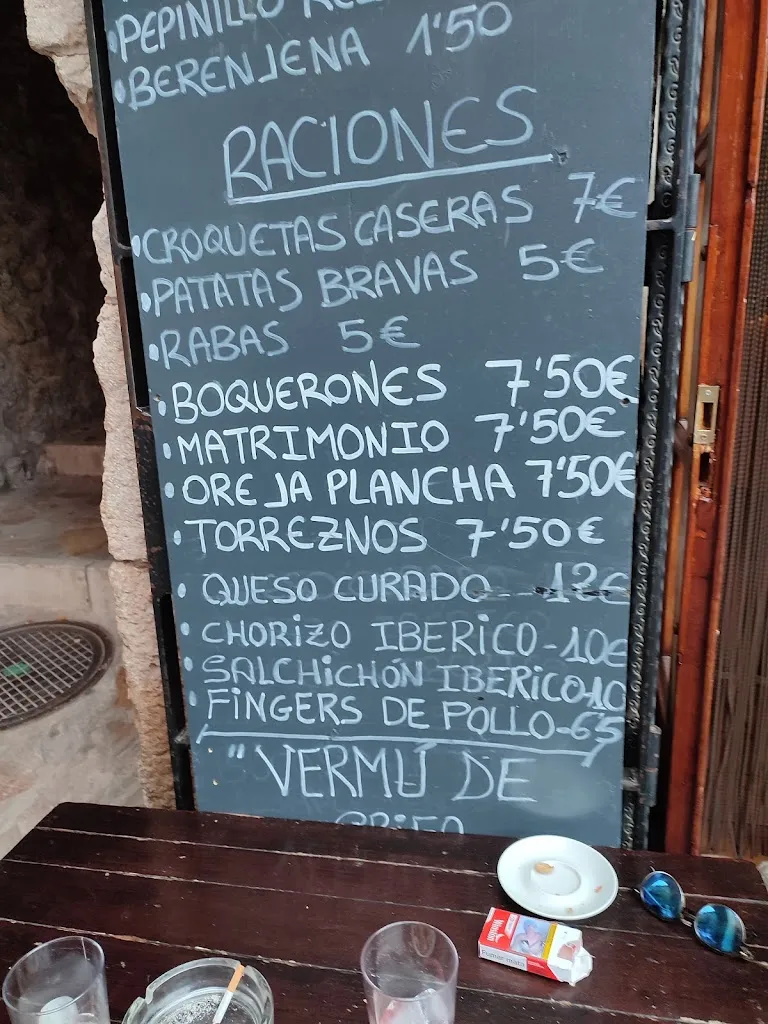 ·PEPINILLO
·BERENJENA 1'50
RACIONES
·CROQUETAS CASERAS 7€
·PATATAS BRAVAS 5€
·RABAS 5€
·BOQUERONES 7'50€
·MATRIMONIO 7'50€
·OREJA PLANCHA 7'50€
·TORREZNOS 7'50€
·QUESO CURADO 12€
·CHORIZO IBERICO-10€
·SALCHICHÓN IBERICO-10
·FINGERS DE POLLO-6'5
"VERMÚ DE
GRIFO
Winston
Fumar mata